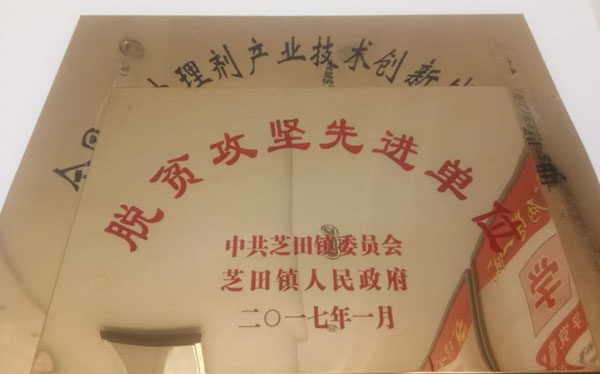 理剂产业技术创新
脱贫攻坚先进单位
中共芝田镇委员会
芝田镇人民政府
二〇一七年一月
学